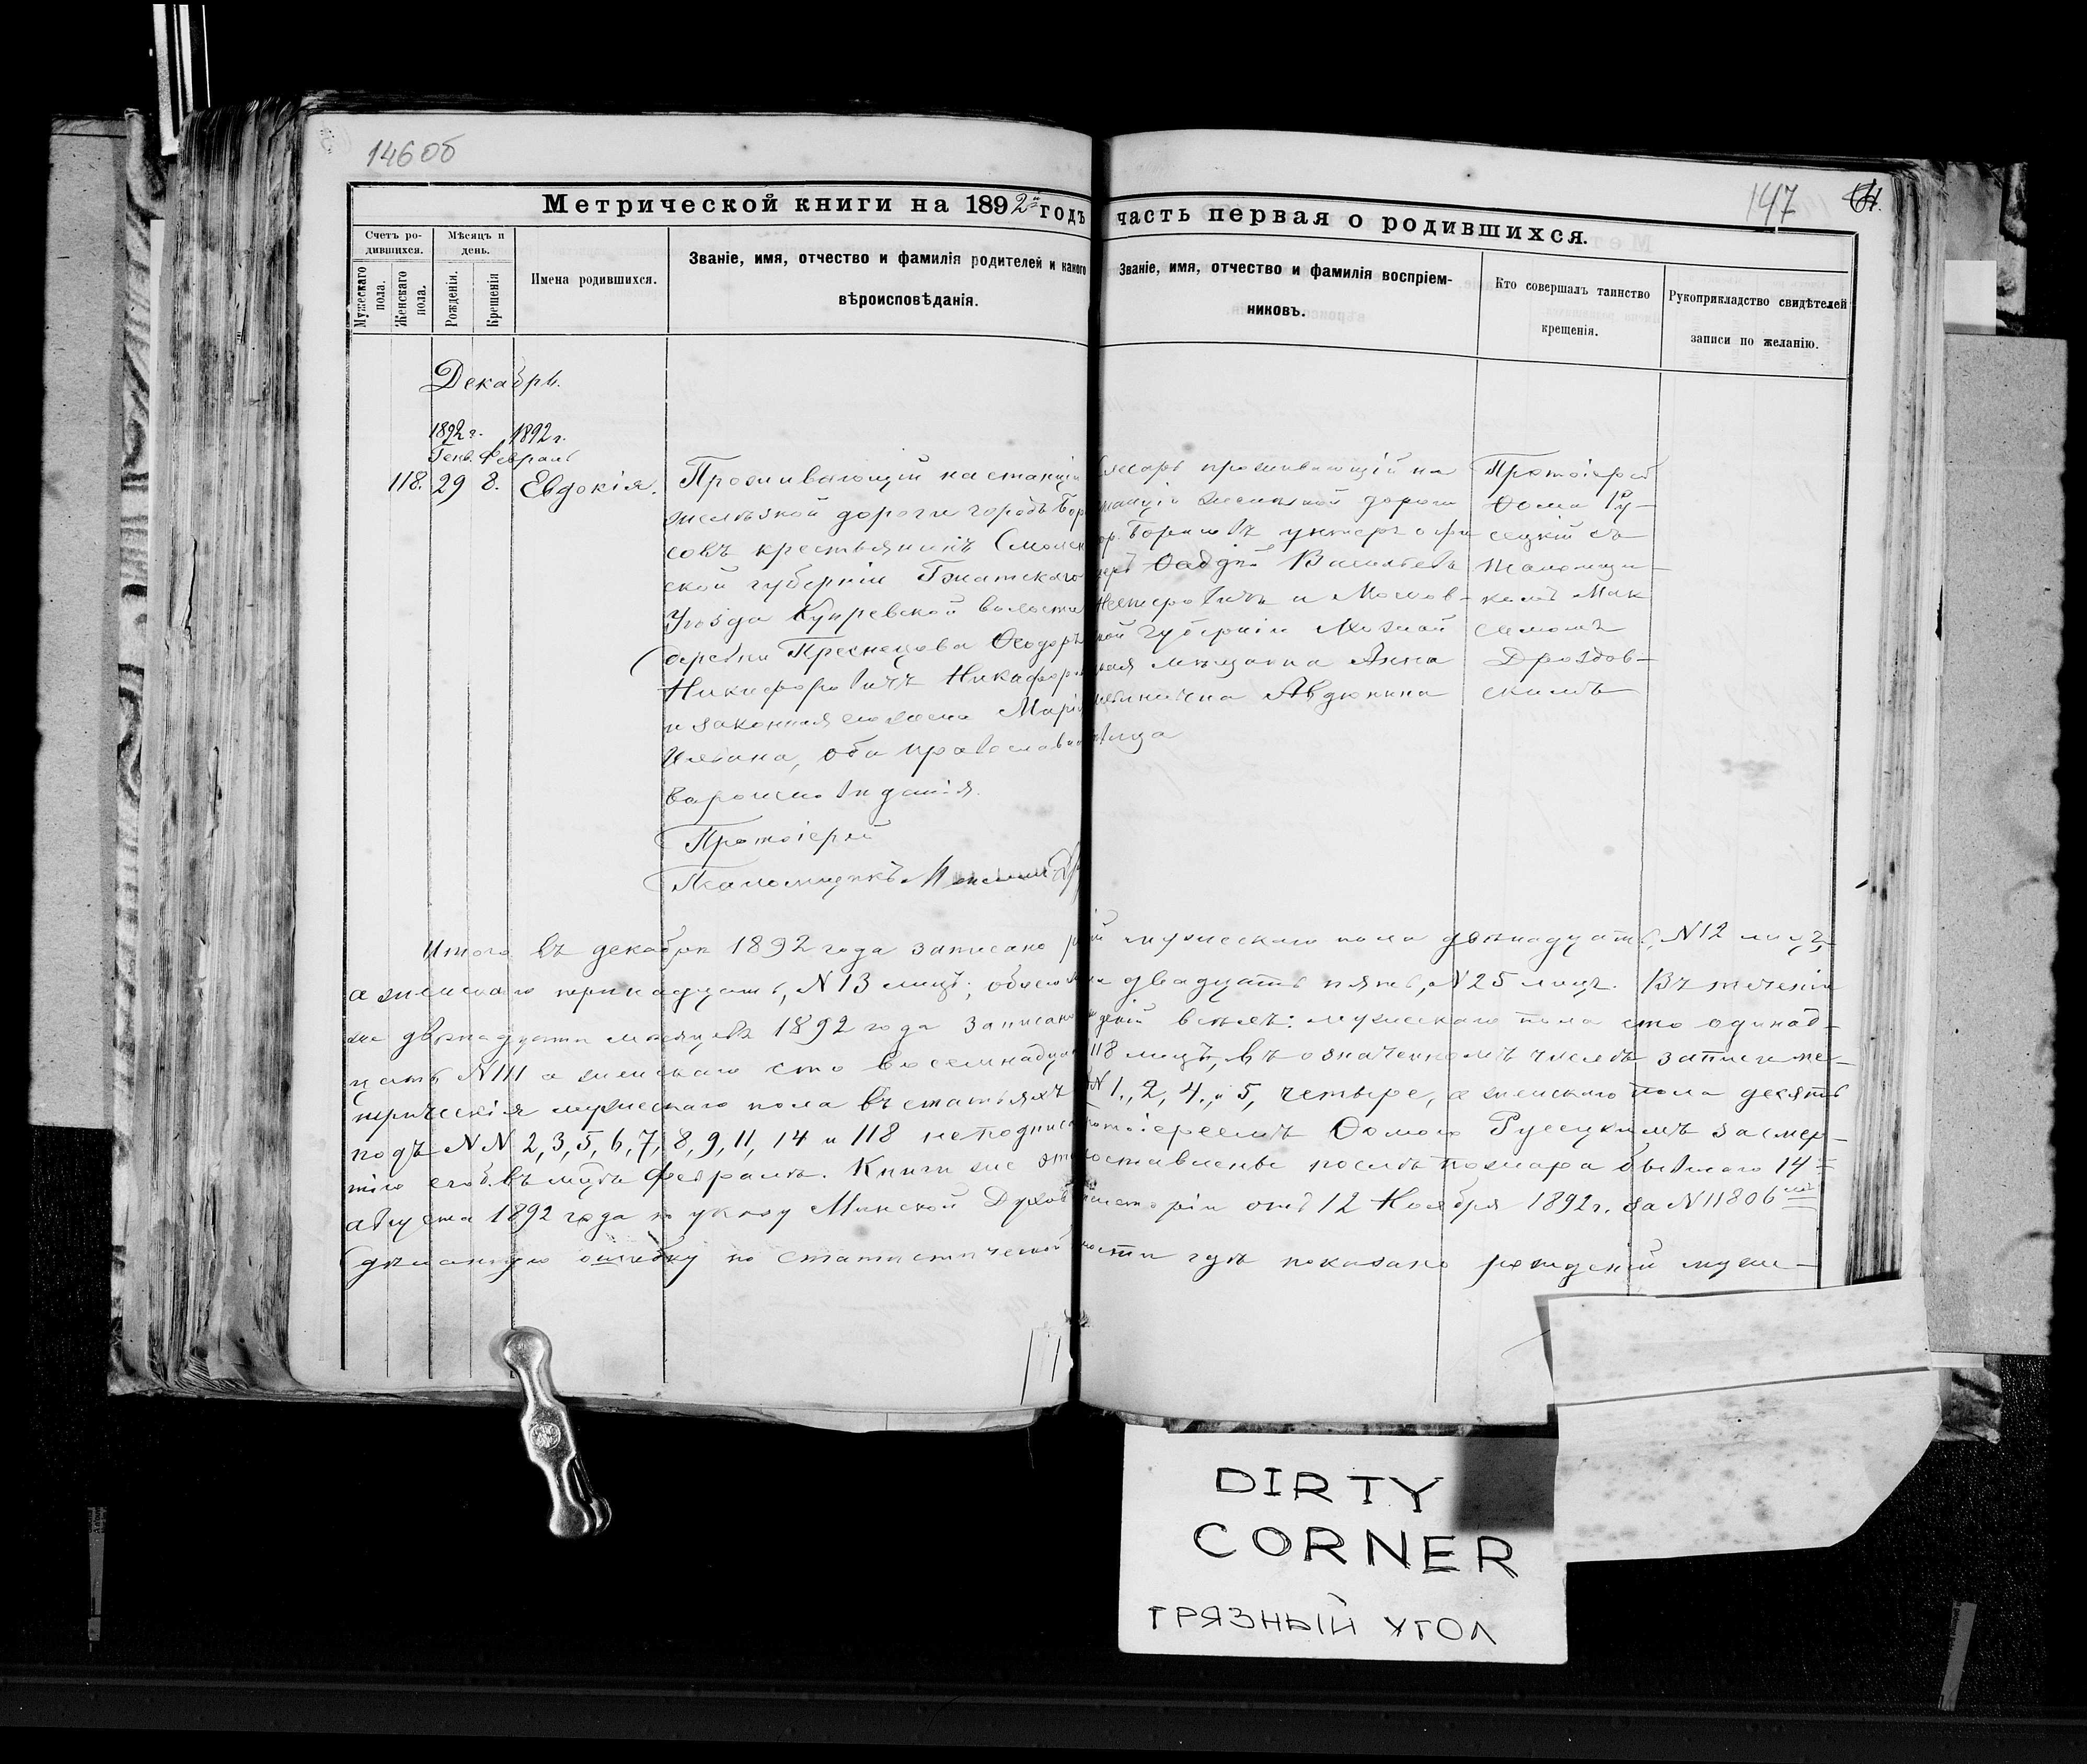 146об
147
Метрической книги на 1892й годъ часть первая о родившихся.
Счетъ ро-
дившихся.
Мужескаго
пола.
Женскаго
пола.
Мѣсяцъ и
день.
Рожденія.
Крещенія
Имена родившихся.
Званіе, имя, отчество и фамилія родителей и какого
вѣроисповѣданія.
Званіе, имя, отчество и фамилія воспріем-
никовъ.
Кто совершалъ таинство
крещенія.
Рукоприкладство свидѣтелей
записи по желанію.
Декабрь.
1892 г. 1892 г.
Генв. Февраль
118. 29 8. Евдокія.
Проживающій на станціи
желѣзной дороги городъ Бор
совъ крестьянинъ Смолен
ской губерніи Гжатскаго
Уѣзда Купревской волости
деревни Преснецова Ѳеодоръ
Никифоровичъ Никифоро
и законная его жена Марія
Ильина, оба православнаго
вѣроисповѣданія.
Протоіерей
Псаломщикъ
проживающій на
станціи желѣзной дороги
гор. Борисовѣ унтеръ офи
Васильевъ
Нестеровичъ и Москов-
кой губерніи
мѣщанка Анна
Авдюнина
дѣвица
Протоіерей
Ѳома Ру-
сецкій съ
псаломщи-
комъ Мак
симомъ
Дроздов-
скимъ
Итого въ декабрѣ 1892 года записано мужескаго пола двѣнадцать, N12 лицъ,
а женскаго тринадцать, N13 лицъ; обоего двадцать пять, N25 лицъ. Въ теченіи
же двѣнадцати мѣсяцевъ 1892 года записано всѣхъ: мужескаго пола сто одинад-
цать N111 а женскаго сто восемнадцать 118 лицъ, въ означенномъ числѣ записи ме-
трическія мужескаго пола въ статьяхъ N 1., 2, 4., и 5, четыре, а женскаго пола десять
подъ NN 2, 3, 5, 6, 7, 8, 9, 11, 14 и 118 неподписаны протоіереемъ Ѳомою Русецкимъ за смер-
тію его въ Февралѣ. Книги же составлены послѣ пожара бывшаго 14
августа 1892 года по указу Минской Духов 12 Ноября 1892 г. за N11806
ошибку по статистической гдѣ показано рожденій муже-
DIRTY
CORNER
ГРЯЗНЫЙ УГОЛ